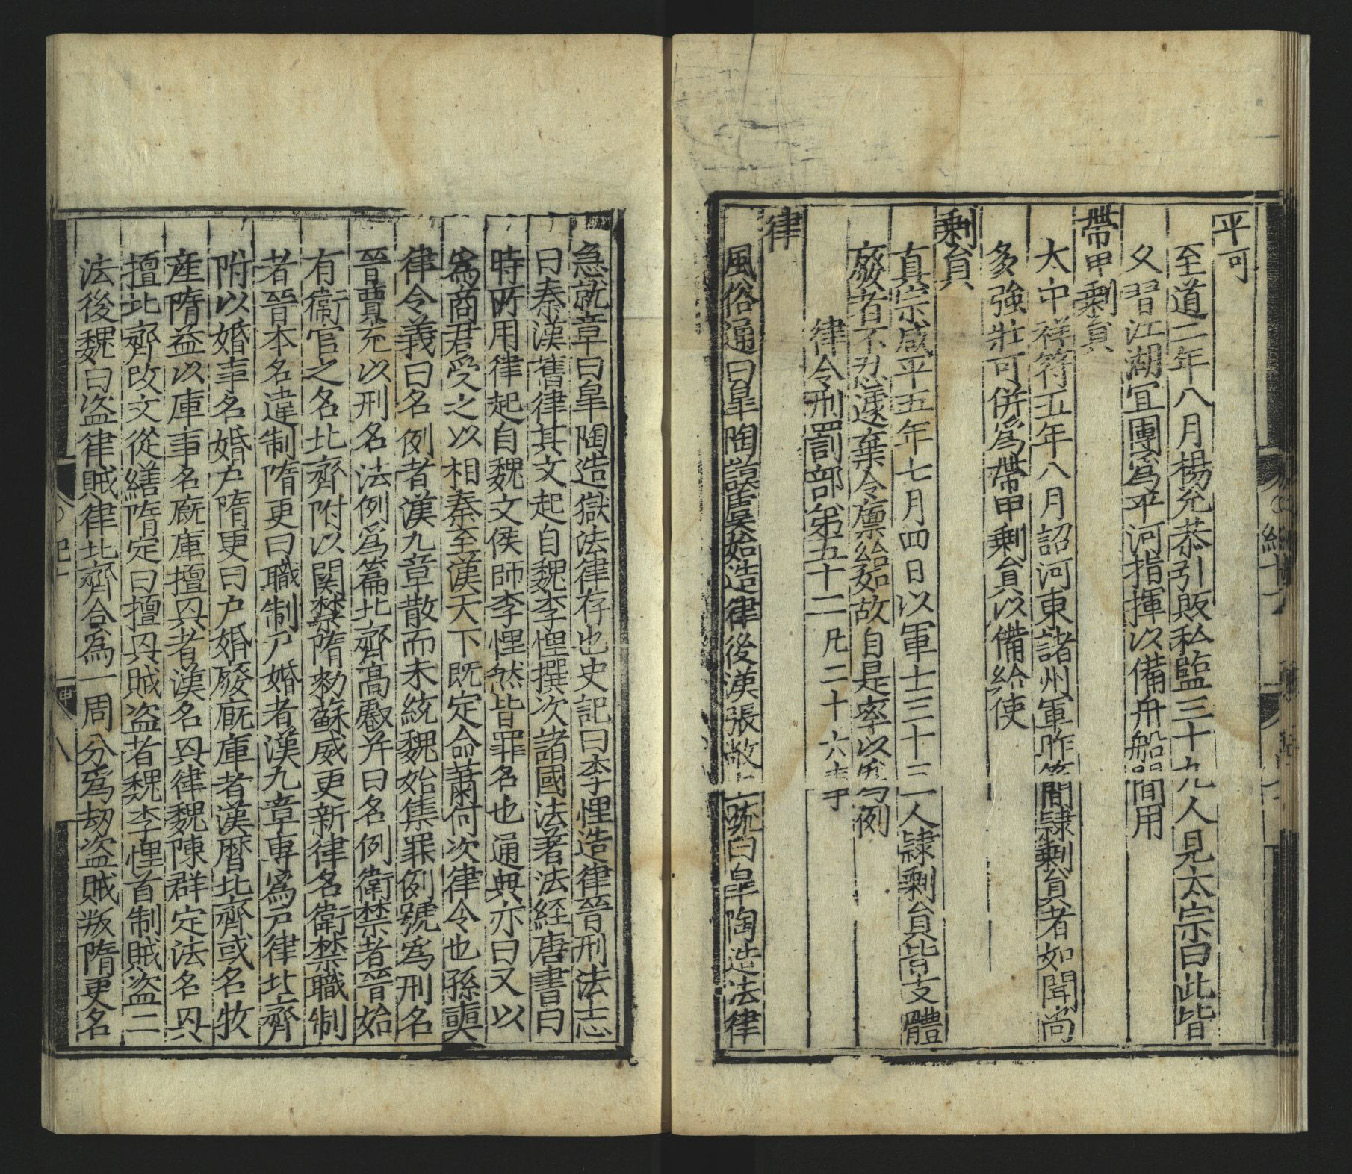 平河
至道二年八月楊允恭引販私監三十九人見太宗曰此皆
久習江湖宜團為平河指揮以備舟船間用
帶甲剩員
大中祥符五年八月詔河東諸州軍昨簡隷剩員者如聞尚
多強壯可併爲帶甲剩員以備給使
剩員
真宗咸平五年七月四日以軍士三十三人隷剩員皆支體
廢者不忍遽棄令廪給如故自是率以爲例
律令刑罰部第五十二凡二十六事
律
風俗通曰皐陶謨虞始造律後漢張敏上疏曰皐陶造法律
急就章曰皐陶造獄法律存也史記曰李悝造律晉刑法志
曰秦漢舊律其文起自魏李悝撰次諸國法著法經唐書曰
時所用律起自魏文侯師李悝然皆罪名也通典亦曰又以
爲商君受之以相秦至漢天下既定命蕭何次律令也孫奭
律令義曰名例者漢九章散而未統魏始集罪例號爲刑名
晉賈充以刑名法例爲篇北齊髙叡并曰名例衛禁者晉始
有衛宮之名北齊附以関禁隋勑蘇威更新律名衛禁職制
者晉本名違制隋更曰職制户婚者漢九章專爲戸律北齊
附以婚事名婚户隋更曰户婚廢厩庫者漢曆北齊或名牧
産隋益以庫事名厩庫擅㒷者漢名㒷律魏陳群定法名㒷
擅北齊改文從繕隋定曰擅㒷賊盗者魏李悝首制賊盗二
法後魏曰盗律賊律北齊合爲一周分爲劫盗賊叛隋更名